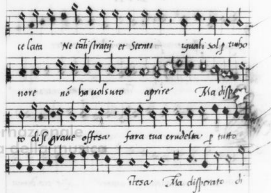 celata Ne tāti stratij et Stenti iquali sol p
nore nō ha volsuto aprire Ma disper
to di si grave offesa fara tua crudelta p tutto
itesa Ma disperato di